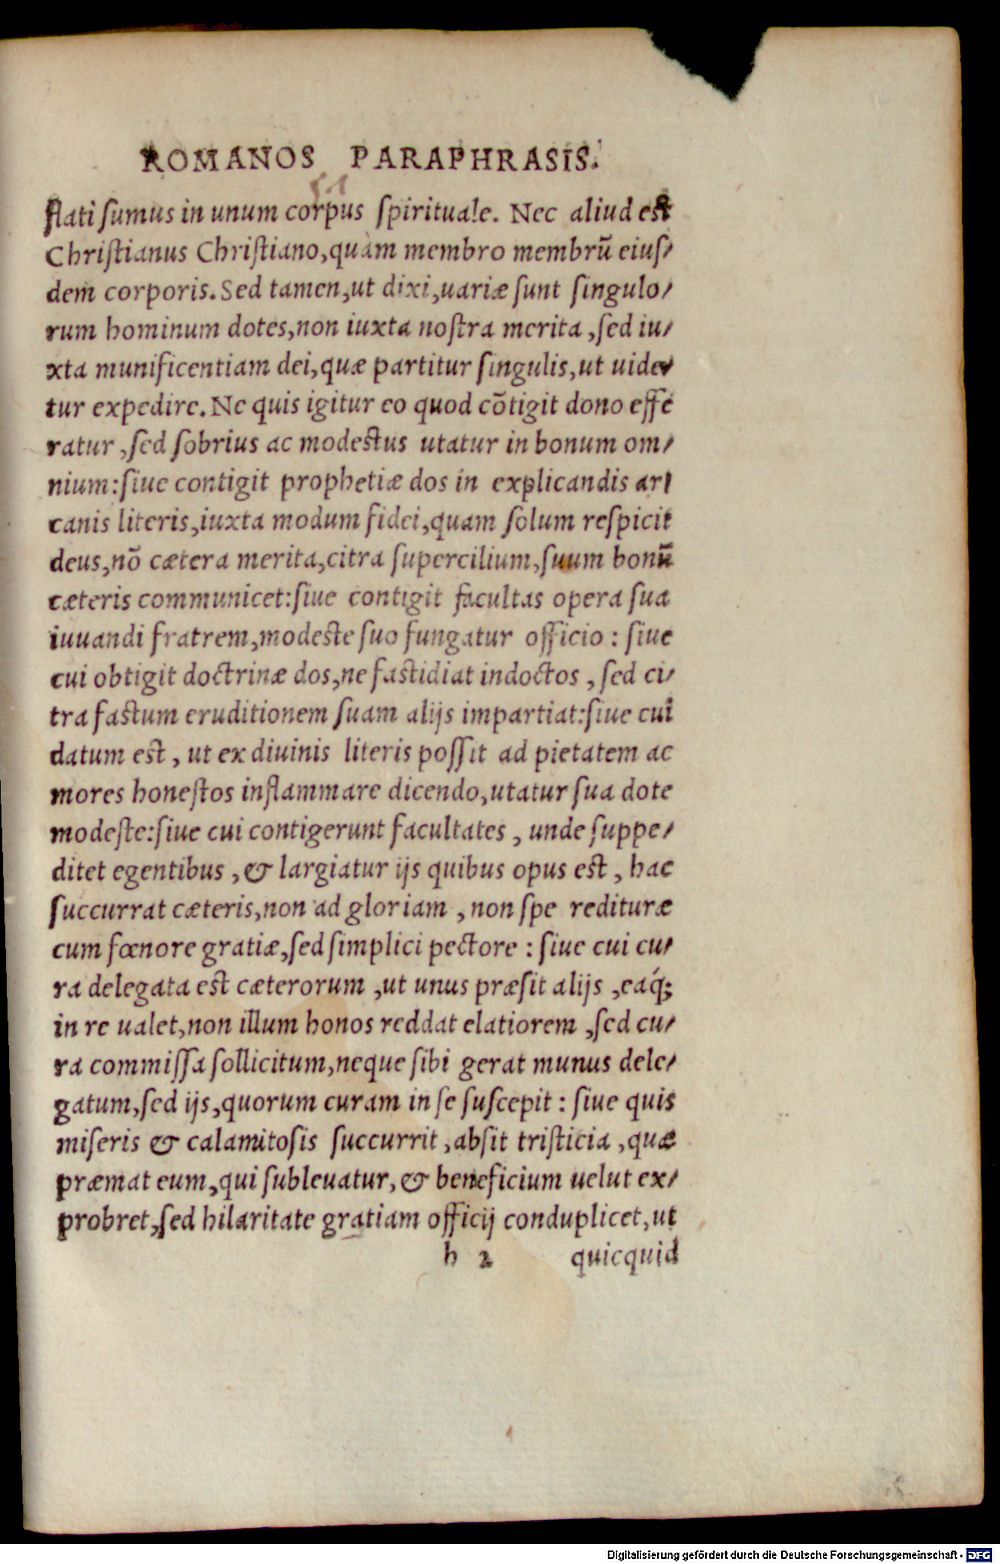 ROMANOS PARAPHRASIS.
flati sumus in unum corpus spirituale. Nec aliud est
Christianus Christiano, quàm membro membrũ eius/
dem corporis. Sed tamen, ut dixi, uariæ sunt singulo/
rum hominum dotes, non iuxta nostra merita, sed iu/
xta munificentiam dei, quæ partitur singulis, ut uide/
tur expedire. Ne quis igitur eo quod cõtigit dono effe
ratur, sed sobrius ac modestus utatur in bonum om/
nium: siue contigit prophetiæ dos in explicandis ar/
canis literis, iuxta modum fidei, quam solum respicit
deus, nõ cætera merita, citra supercilium, suum bonũ
cæteris communicet: siue contigit facultas opera sua
iuuandi fratrem, modeste suo fungatur officio: siue
cui obtigit doctrinæ dos, ne fastidiat indoctos, sed ci/
tra fastum eruditionem suam alijs impartiat: siue cui
datum est, ut ex diuinis literis possit ad pietatem ac
mores honestos inflammare dicendo, utatur sua dote
modeste: siue cui contigerunt facultates, unde suppe/
ditet egentibus, & largiatur ijs quibus opus est, hac
succurrat cæteris, non ad gloriam, non spe redituræ
cum fœnore gratiæ, sed simplici pectore: siue cui cu/
ra delegata est cæterorum, ut unus præsit alijs, eaq́;
in re ualet, non illum honos reddat elatiorem, sed cu/
ra commissa sollicitum, neque sibi gerat munus dele/
gatum, sed ijs, quorum curam in se suscepit: siue quis
miseris & calamitosis succurrit, absit tristicia, quæ
præmat eum, qui subleuatur, & beneficium uelut ex/
probret, sed hilaritate gratiam officij conduplicet, ut
h 2 quicquid
Digitalisierung gefördert durch die Deutsche Forschungsgemeinschaft - DFG